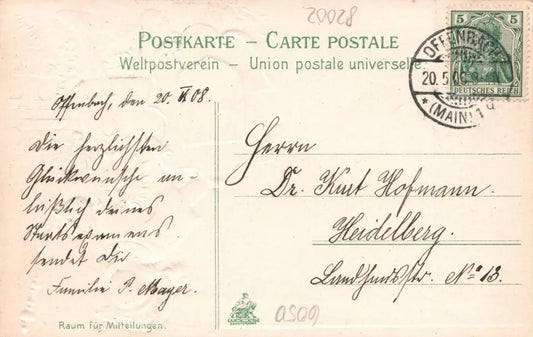 20028
POSTKARTE – CARTE POSTALE
Weltpostverein – Union postale universelle
5 5
DEUTSCHES REICH
OFFENBACH
20.5.0
* (MAIN) 1
Offenbach, den 20. V. 08.
Die herzlichsten
Glückwünsche an-
läßlich deines
Staatsexamens
sendet Dir
Familie P. Mayer.
Herrn
Dr. Kurt Hofmann.
Heidelberg.
Landhausstr. No 13.
Raum für Mitteilungen.